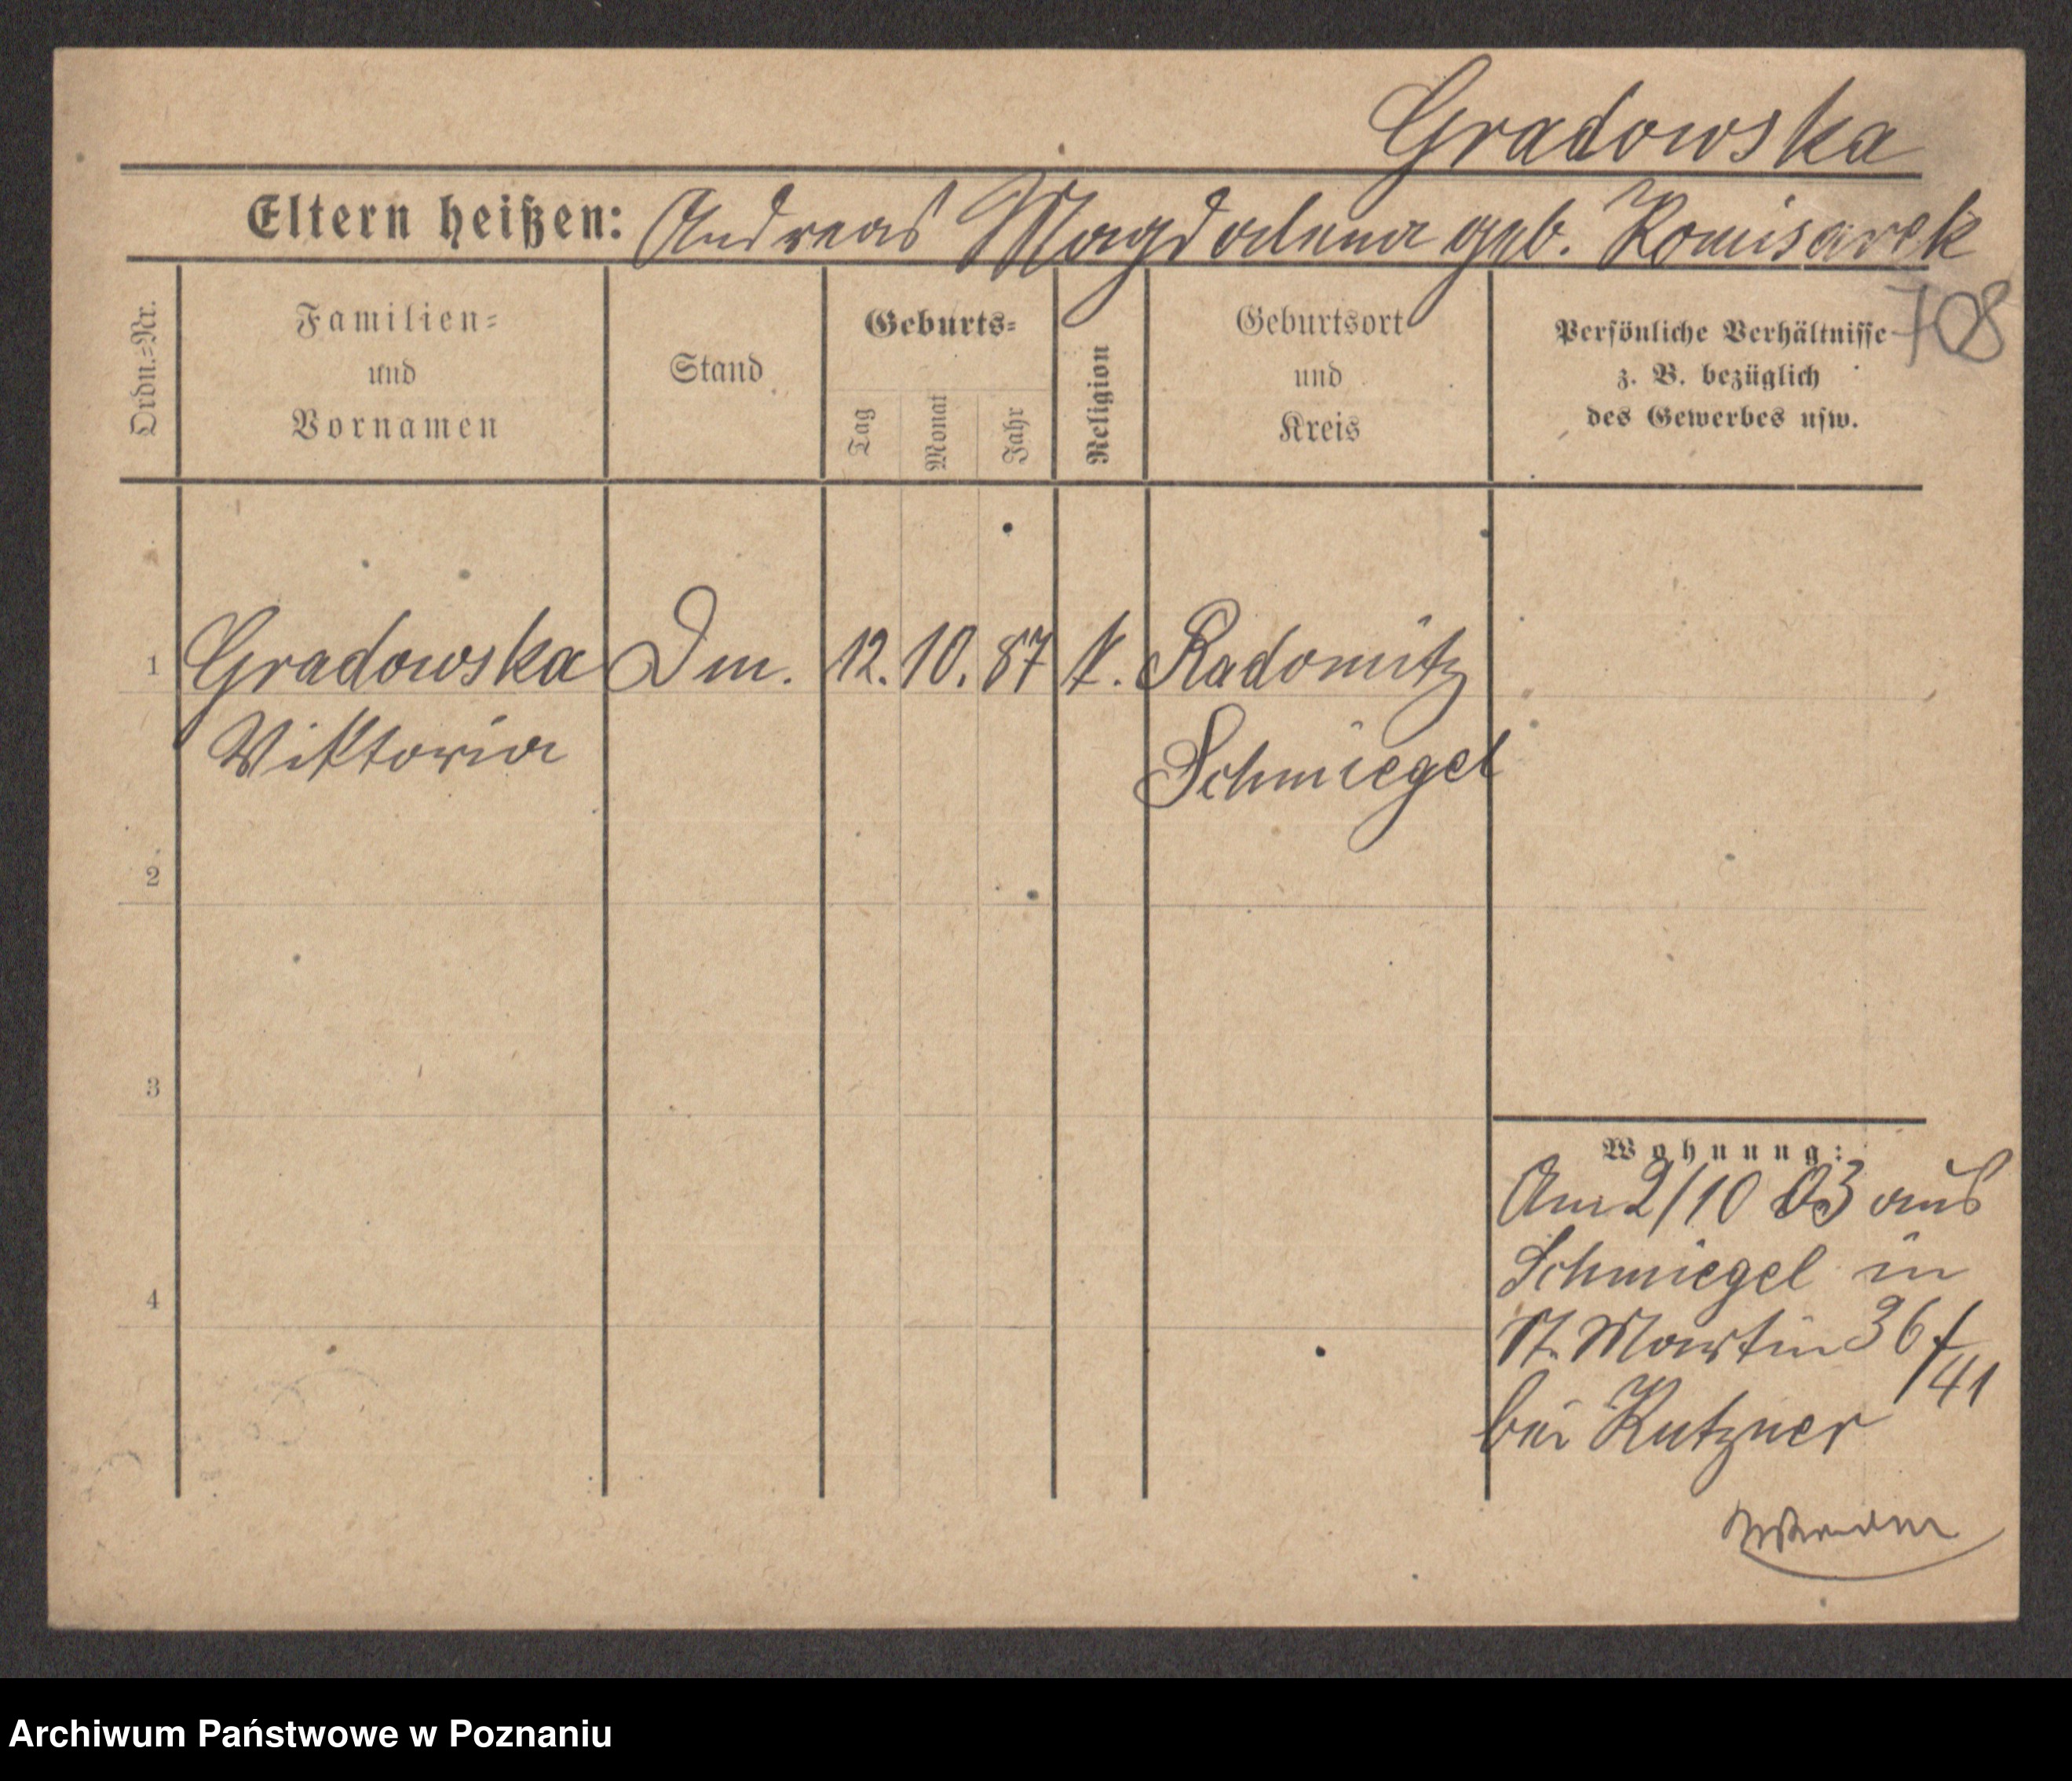 Gradowska
Eltern heißen: Andreas Magdalena geb. Komisarek
708
Ordn.=Nr.
Familien=
und
Vornamen
Stand
Geburts=
Tag
Monat
Jahr
Religion
Geburtsort
und
Kreis
Persönliche Verhältnisse
z. B. bezüglich
des Gewerbes usw.
1 Gradowska Dm. 12. 10. 87 k. Radomitz
Viktoria Schmiegel
2
3
4
Wohnung:
Am 2/10 03 aus
Schmiegel in
St. Martin 36 f
/41
bei Kutzner
Archiwum Państwowe w Poznaniu